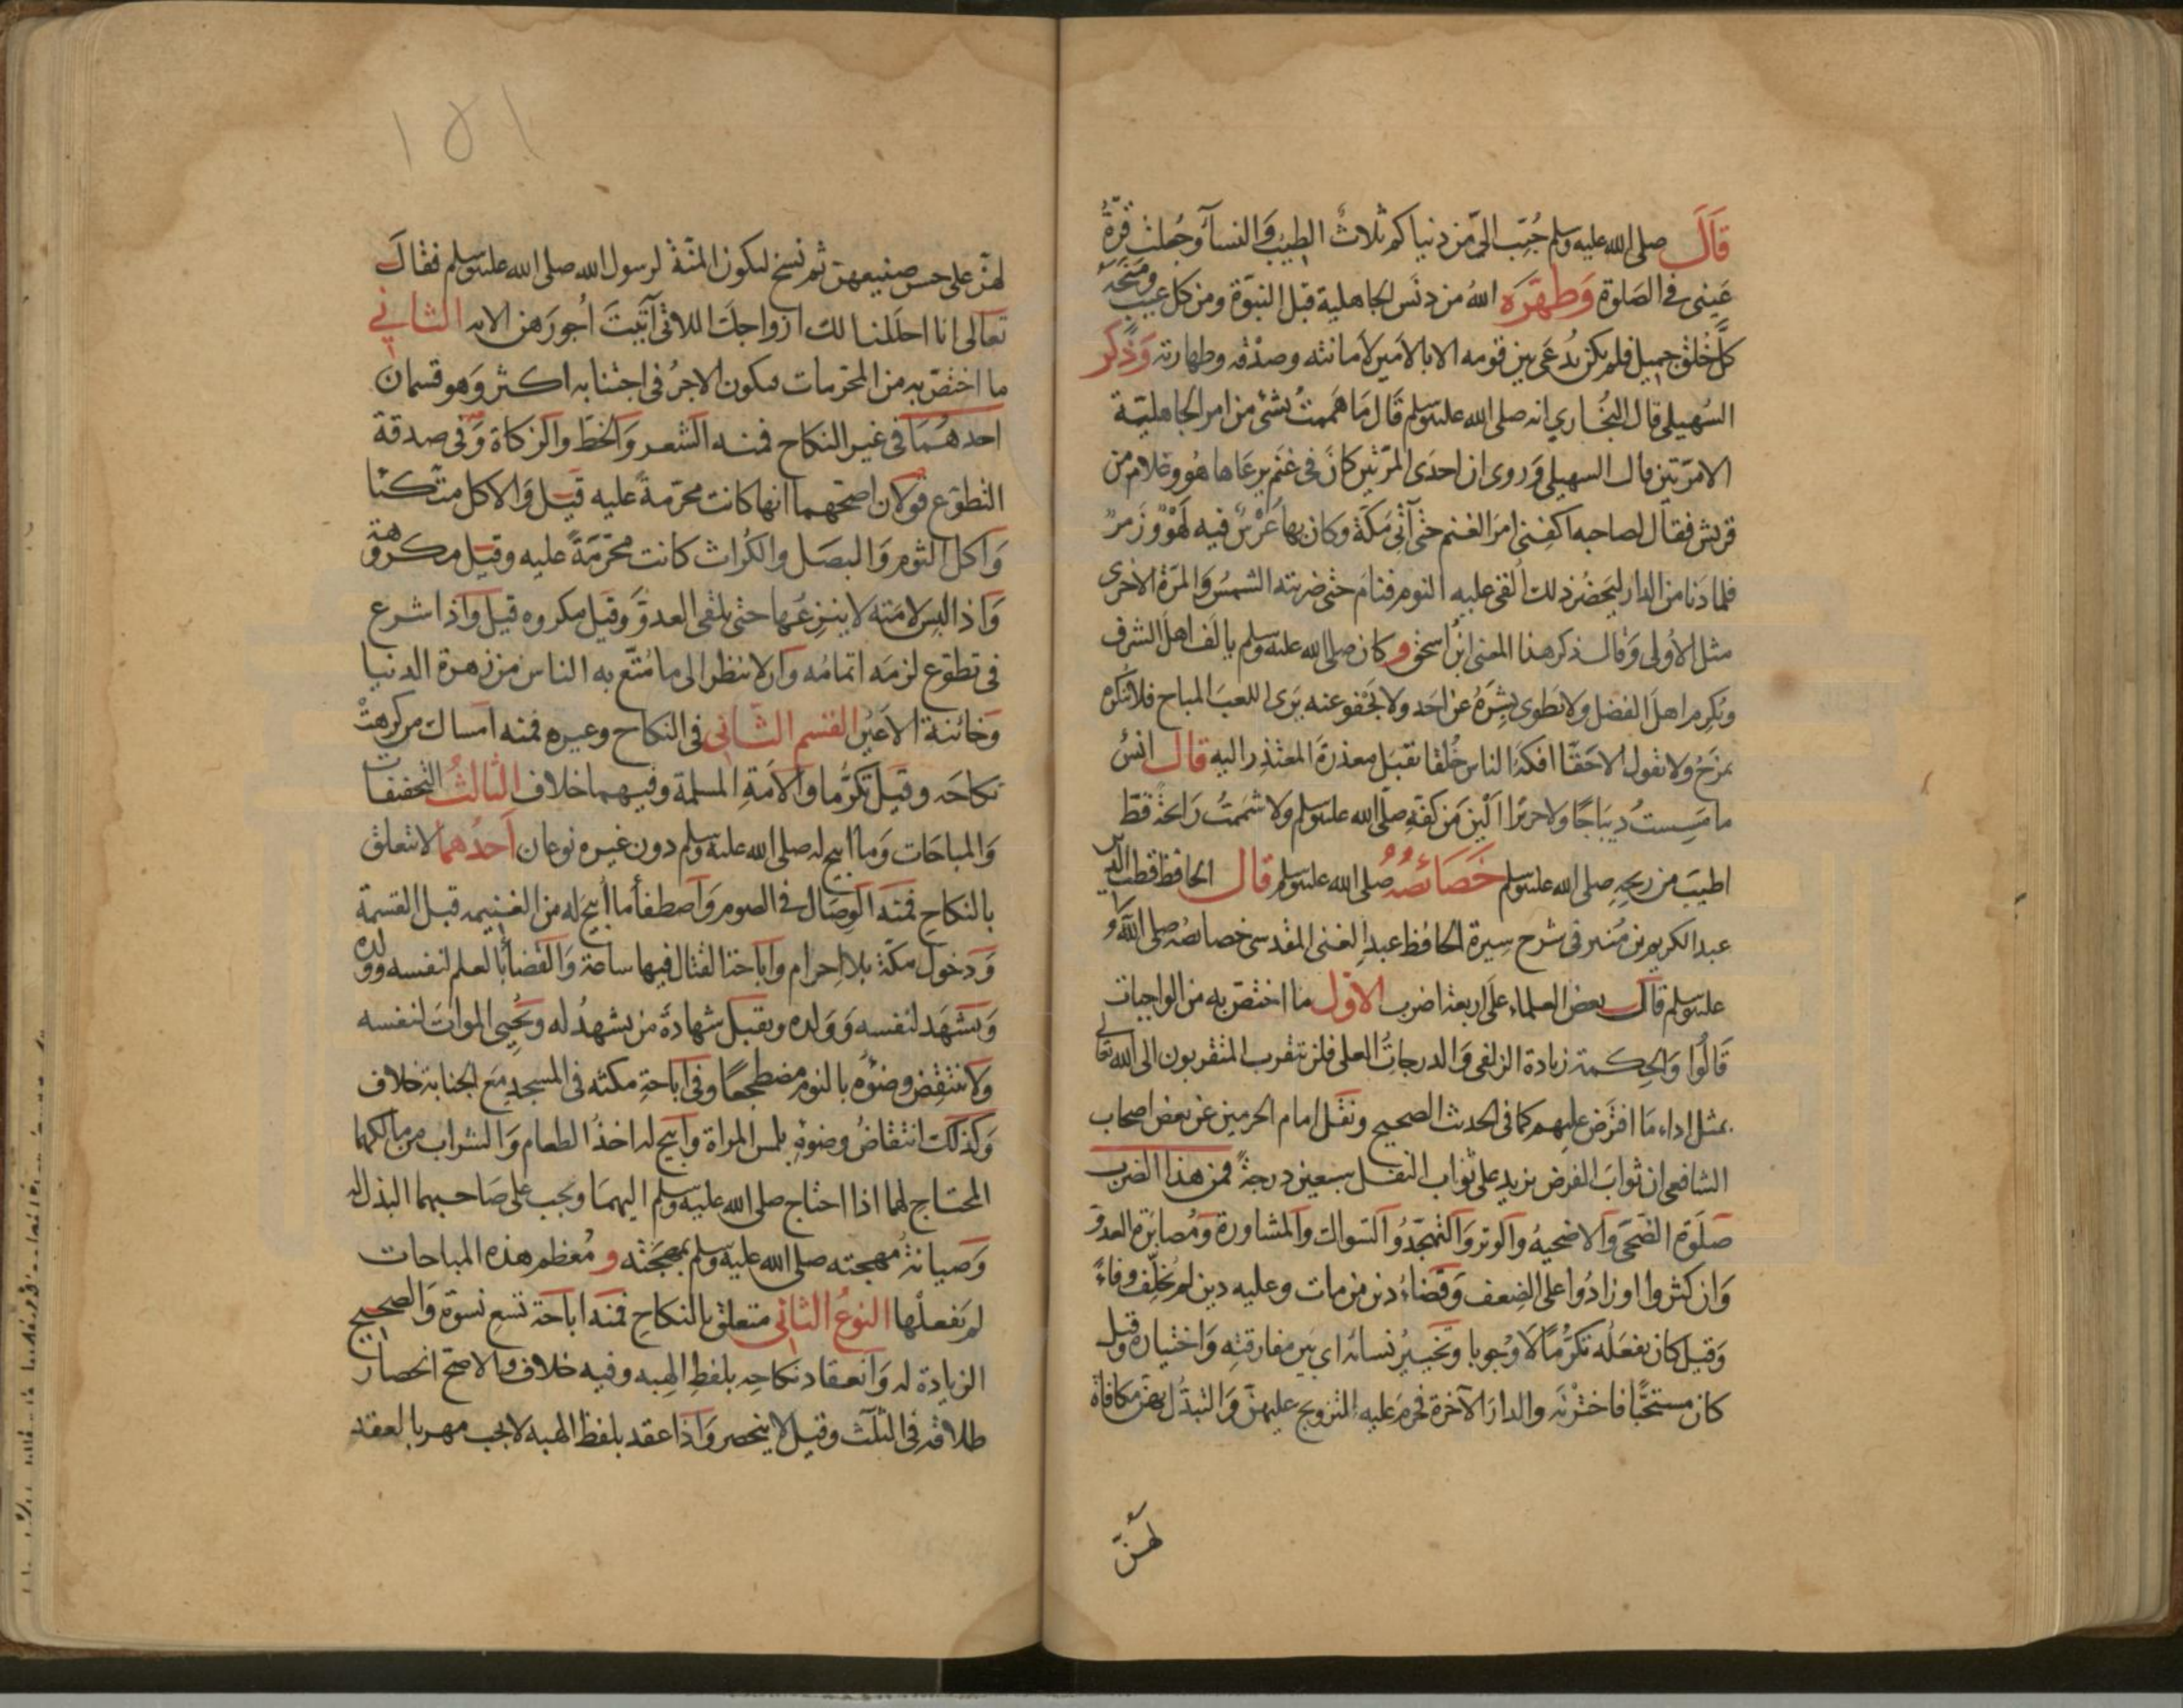 قال صلى الله عليه وسلم حُبّب الىّ من دنياكم ثلاث الطيب والنسآء وجُعلت قرّة
عينى فى الصلوة وطهّره الله من دنس الجاهلية قبل النبوّة ومن كل عيب ومنحه
كلَّ خُلق جميل فلم يكن يُدعَى بين قومه الا بالامين لأمانته وصدقه وطهارته وذكر
السُهيلى قال البخارى انه صلى الله عليه وسلم قال مَا هَممتُ بشئ من امر الجاهلية
الا مرّتين قال السهيلى وروى ان احدى المرّتين كان فى غنم يرعاها هُو وغلام من
قريش فقال لصاحبه اكفنى امر الغنم حتى آتى مكة وكان بها عُرْسٌ فيه لَهْوٌ وزَمرٌ
فلما دنا من الدار ليحضر ذلك اُلقى عليه النوم فنام حتى ضربته الشمسُ والمرّة الاخرى
مثل الأولى وقال ذكر هذا المعنى ابن اسحق و كان صلى الله عليه وسلم يالف اهل الشرف
ويُكرم اهل الفضل ولا يَطوى بِشرَهُ عن احد ولا يَجفو عنه يَرى اللعبَ المباح فلا يُنكره
يمزح ولا يقول الا حَقًّا افكهَ الناس خُلقا يقبَل معذرة المعتذر اليه قال انسٌ
ما مَسِستُ ديبَاجًا ولا حريرًا ألْيَن من كفّهِ صلى الله عليه وسلم ولا شممتُ رَائحة قطّ
اطيَبَ من ريحِهِ صلى الله عليه وسلم خَصَائصُه صلى الله عليه وسلم قال الحافظ قطب الدين
عبد الكريم بن مُنير فى شرح سيرة الحافظ عبد الغنى المقدسى خصائصه صلى الله
عليه وسلم قال بعض العلماء على اربعة اضرب الاوّل ما اختصّ به من الواجبات
قَالُوا وَالحِكمة زيادة الزلفى والدرجاتُ العلى فلن يتقرب المتقربون الى الله تعالى
بمثل اداء مَا افترض عليهم كما فى الحديث الصحيح ونقل امام الحرمين عن بعض اصحاب
الشافعى ان ثوابَ الفرض يزيد على ثواب النفل سبعين درجةً فمن هذا الضرب
صلوة الضحَى والاضحيه والوتر والتهجّد والسواك والمشاورة ومُصابرَة العدوّ
وَان كثروا او زادُوا على الضِعف وقضاءُ دين من مات وعليه دين لم يُخلّف وفاءً
وَقيل كان يفعله تكرُّمًا لَا وُجوبا وتخييرُ نسائه اى بين مفارقتِهِ وَاختياره وقيل
كان مستحبًّا فاخترنَه والدارَ الآخرة فحُرم عليه التزويج عليهنّ وَالتبدّل بهنّ مكافاة
لهنّ
١٥١
لهنّ على حسن صنيعهن ثم نُسخ ليكون المنّة لرسول الله صلى الله عليه وسلم فقال
تعالى انا احللنا لك ازواجك اللاتى آتيتَ اُجورَهن الايه الثانى
ما اختصّ به من المحرّمات ليكون الاجرُ فى اجتنابه اكثر وَهو قسمان
احدهُمَا فى غير النكاح فمنه الشعر وَالخط والزكاة وَفى صدقة
التطوّع قولان اصحّهما انها كانت محرّمةً عليه قيل وَالاكل متكئا
وَاكل الثوم وَالبصَل والكُراث كانت محرّمَةً عليه وقيل مكروهة
وَاذا لبسَ لامته لا ينزعُها حتى يلقى العدوّ وقيل مكروه قيل وَاذا شرع
فى تطوّع لزمه اتمامُه وَان لا ينظر الى ما مُتّع به الناس من زهرة الدنيا
وَخائنة الاعين القسم الثّانى فى النكاح وغيره فمنه امساك من كرهتْ
نكاحَه وقيل تكرُّما والأمَةِ المسلمة وفيهما خلاف الثالثُ التخفيفات
وَالمباحَات وَما ابيح له صلى الله عليه وسلم دون غيره نوعان احدُهما لا يتعلق
بالنكاح فمنه الوِصَال فى الصوم وَاصطفاء ما اُبيح له من الغنيمه قبل القسمة
وَدخول مكة بلا اِحرام وَاباحة القتال فيها ساعة وَالقضاءُ بالعلم لنفسه وولده
وَيشهَد لنفسه وَوَلده ويقبل شهادة من يشهدُ له ويُحيى الموات لنفسه
وَلا ينتقِض وضوءُه بالنوم مضطجعا وفى اباحةِ مكثه فى المسجد مَع الجنابة خلاف
وَكذلك انتقاضُ وضوئِه بلمس المراة وَابيح له اخذُ الطعام وَالشراب من مالكهما
المحتاج لهما اذا احتاج صلى الله عليه وسلم اليهمَا ويجب على صَاحبهما البذل له
وَصيانةُ مُهجته صلى الله عليه وسلم بمهجَته و مُعظم هذه المباحات
لم يَفعلها النوعُ الثانى متعلق بالنكاحِ فمنه اباحة تسع نسوَة وَالصحيح
الزيادة له وَانعقاد نكاحِه بلفظِ الهِبه وفيه خلاف والاصحّ انحصار
طلاقه فى الثلث وقيل لا ينحصر وَاذا عقد بلفظ الهبه لا يجب مهر بالعقد